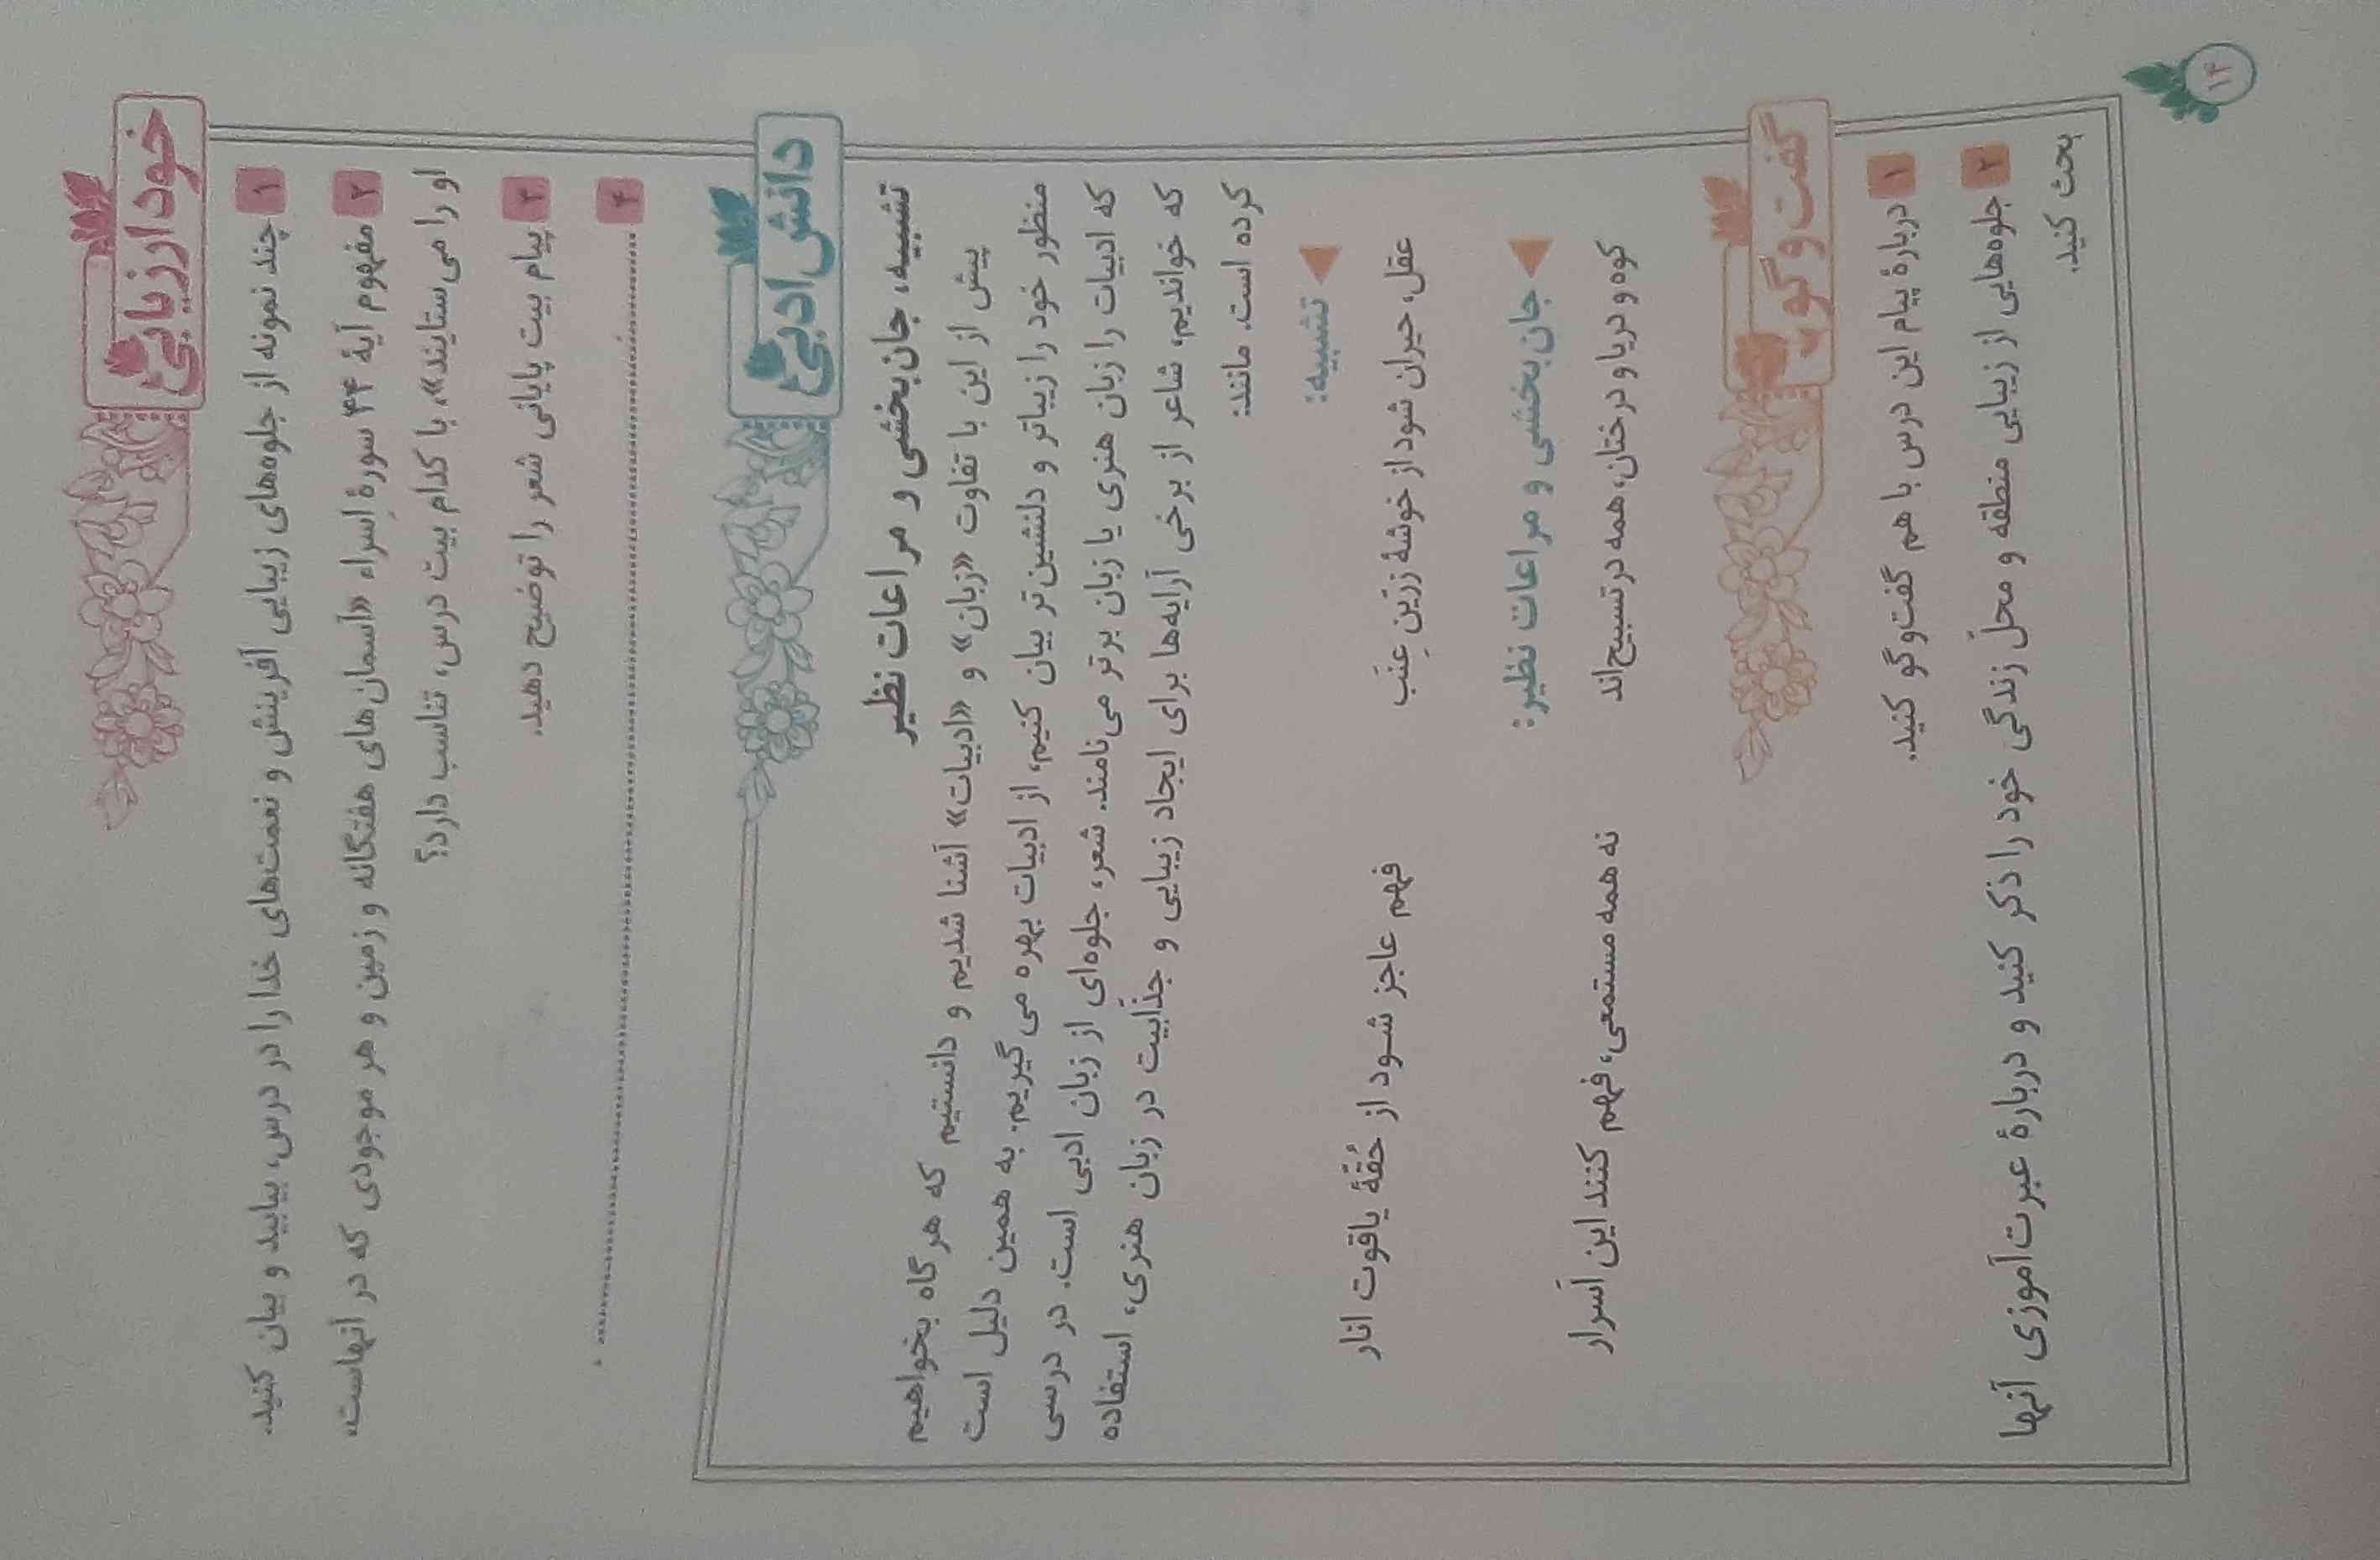 خودارزیابی
۱ چند نمونه از جلوه‌های زیبایی آفرینش و نعمت‌های خدا را در درس، بیابید و بیان کنید.
۲ مفهوم آیهٔ ۴۴ سورهٔ اِسراء «آسمان‌های هفتگانه و زمین و هر موجودی که در آنهاست،
او را می‌ستایند»، با کدام بیت درس، تناسب دارد؟
۳ پیام بیت پایانی شعر را توضیح دهید.
۴
دانش ادبی
تشبیه، جان‌بخشی و مراعات نظیر
پیش از این با تفاوت «زبان» و «ادبیات» آشنا شدیم و دانستیم که هرگاه بخواهیم
منظور خود را زیباتر و دلنشین‌تر بیان کنیم، از ادبیات بهره می‌گیریم. به همین دلیل است
که ادبیات را زبان هنری یا زبان برتر می‌نامند. شعر، جلوه‌ای از زبان ادبی است. در درسی
که خواندیم، شاعر از برخی آرایه‌ها برای ایجاد زیبایی و جذّابیت در زبان هنری، استفاده
کرده است. مانند:
تشبیه:
عقل، حیران شود از خوشهٔ زرّینِ عِنَب فهم عاجز شود از حُقّهٔ یاقوت انار
جان‌بخشی و مراعات نظیر:
کوه و دریا و درختان، همه در تسبیح‌اند نه همه مستمعی، فهم کنند این اَسرار
گفت‌وگو
۱ دربارهٔ پیام این درس با هم گفت‌وگو کنید.
۲ جلوه‌هایی از زیبایی منطقه و محلّ زندگی خود را ذکر کنید و دربارهٔ عبرت‌آموزی آنها
بحث کنید.
۱۴